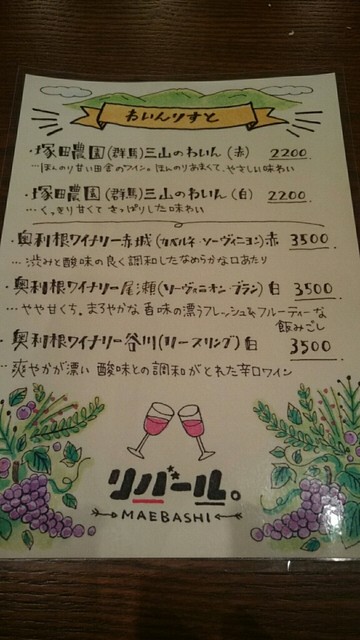 わいんりすと
・塚田農園(群馬)三山のわいん(赤) 2200
…ほんのり甘い田舎のワイン。ほんのりあまくて、やさしい味わい
・塚田農園(群馬)三山のわいん(白) 2200
…くっきり甘くてさっぱりした味わい
・奥利根ワイナリー赤城(カベルネ・ソーヴィニヨン)赤 3500
…渋みと酸味の良く調和したなめらかな口あたり
・奥利根ワイナリー尾瀬(ソーヴィニオン・ブラン)白 3500
…やや甘くち。まろやかな香味の漂うフレッシュ&フルーティーな
飲みごし
・奥利根ワイナリー谷川(リースリング)白 3500
…爽やかが漂い酸味との調和がとれた辛口ワイン
リバール。
MAEBASHI